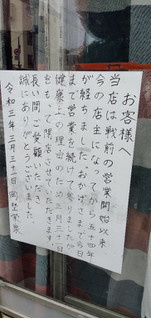 お客様へ
当店は戦前の営業開始以来
今の店主になってから五十四年
が経ちましたおかげさまで今日
まで営業を続けて参りましたが
健康上の理由のため三月三十一日
をもって閉店させていただきます
長い間ご愛顧いただき
誠にありがとうございました
令和三年三月三十一日 店主